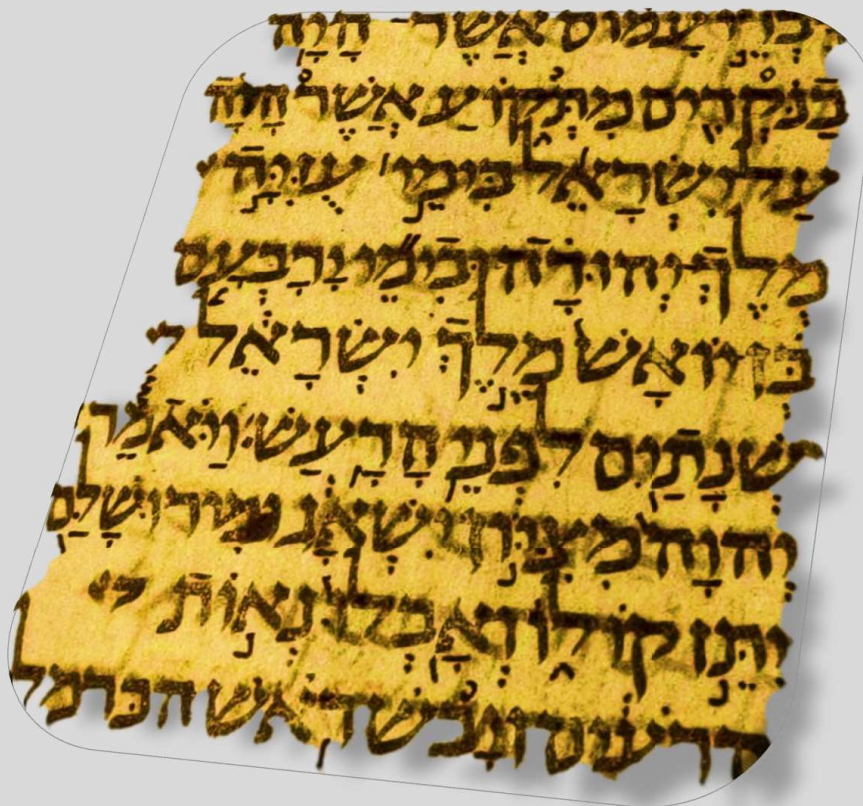 דִּבְרֵי עָמוֹס אֲשֶׁר הָיָה
בַנֹּקְדִים מִתְּקוֹעַ אֲשֶׁר חָזָה
עַל יִשְׂרָאֵל בִּימֵי עֻזִּיָּה
מֶלֶךְ יְהוּדָה וּבִימֵי יָרָבְעָם
בֶּן יוֹאָשׁ מֶלֶךְ יִשְׂרָאֵל
שְׁנָתַיִם לִפְנֵי הָרָעַשׁ׃ וַיֹּאמַר
יְהוָה מִצִּיּוֹן יִשְׁאָג וּמִירוּשָׁלִַם
יִתֵּן קוֹלוֹ וְאָבְלוּ נְאוֹת
הָרֹעִים וְיָבֵשׁ רֹאשׁ הַכַּרְמֶל